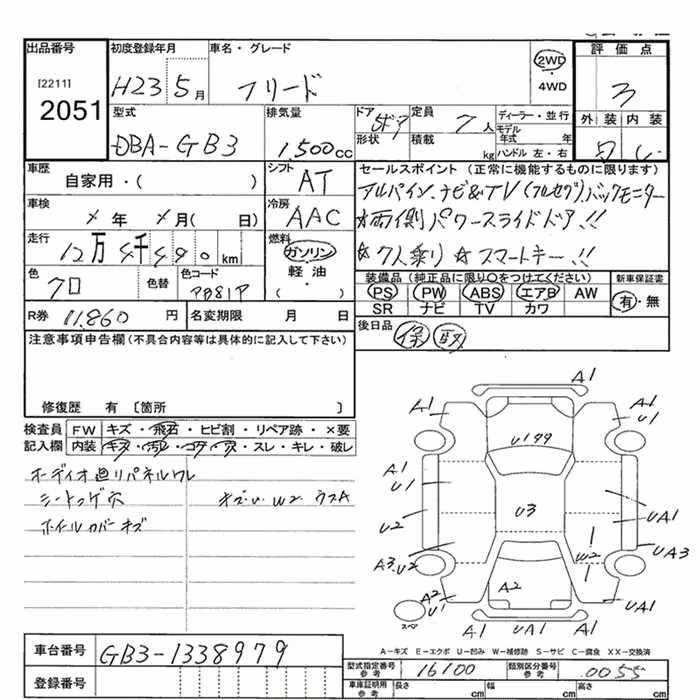 出品番号 初度登録年月 車名・グレード 評価点
[2211] H23 5月 フリード 2WD・4WD 3
2051
型式 排気量 ドア形状 定員 ディーラー・並行 外装 内装
DBA-GB3 1,500cc 5ドア 7人 モデル年式 年
積載 kg ハンドル 左・右
車歴 シフト セールスポイント (正常に機能するものに限ります)
自家用・( ) AT アルパイン.ナビ&TV(フルセグ).バックモニター
車検 冷房
年 月( 日) AAC ☆両側パワースライドドア!!
走行 燃料
12万 4千 km ガソリン ☆7人乗り ☆スマートキー!!
軽油・( )
色 色替 色コード 装備品(純正品に限り○をつけてください) 新車保証書
クロ PS PW ABS エアB AW 有・無
SR ナビ TV カワ
R券 11,860円 名変期限 月 日 後日品 保 取
注意事項申告欄(不具合内容等は具体的に記入して下さい)
修復歴 有〔箇所 〕
検査員 FW キズ・飛石・ヒビ割・リペア跡・×要
記入欄 内装 キズ・汚レ・コゲ・穴・スレ・キレ・破レ
オーディオ廻リパネルワレ
シートコゲ穴 キズ.U.W2 ウスA
ホイルカバーキズ
A1
A1 A1
U1
U199
A1 A1
U1
U2 U3 UA1
UA3
A3.U2 W2
A2 A2
U1
スペア A1 UA1 A1
A-キズ E-エクボ U-凹み W-補修跡 S-サビ C-腐食 XX-交換済
車台番号 GB3-1338979
型式指定番号 16100 類別区分番号 0055
参考 参考
登録番号 車庫証明用 参考 長さ cm 幅 cm 高さ cm